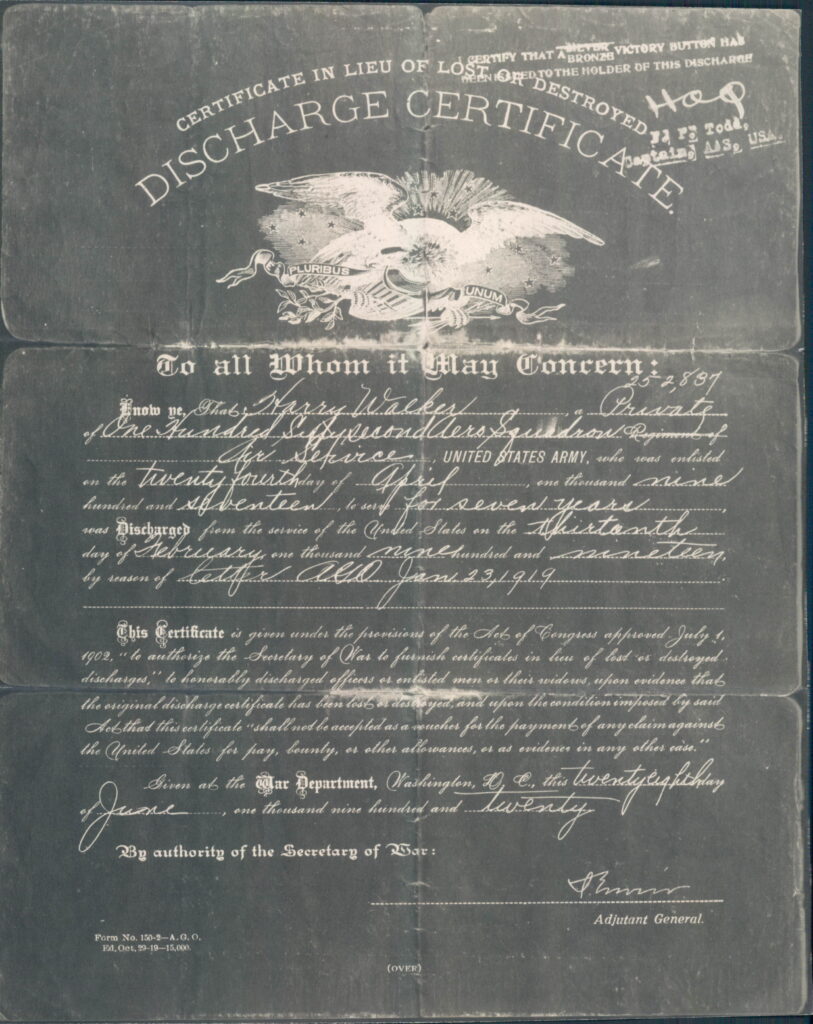 I CERTIFY THAT A SILVER VICTORY BUTTON HAS
BRONZE
BEEN ISSUED TO THE HOLDER OF THIS DISCHARGE
CERTIFICATE IN LIEU OF LOST OR DESTROYED
DISCHARGE CERTIFICATE.
Todd,
Captain, AAS, USA.
PLURIBUS
UNUM
To all Whom it May Concern:
252,837
Know ye, That Harry Walker, a Private
of One Hundred Fifty second Aero Squadron Regiment of
Air Service, UNITED STATES ARMY, who was enlisted
on the twenty fourth day of April, one thousand nine
hundred and seventeen, to serve for seven years,
was Discharged from the service of the United States on the thirtenth
day of February, one thousand nine hundred and nineteen,
by reason of letter AGO Jan. 23, 1919
This Certificate is given under the provisions of the Act of Congress approved July 1,
1902, "to authorize the Secretary of War to furnish certificates in lieu of lost or destroyed
discharges," to honorably discharged officers or enlisted men or their widows, upon evidence that
the original discharge certificate has been lost or destroyed, and upon the condition imposed by said
Act that this certificate "shall not be accepted as a voucher for the payment of any claim against
the United States for pay, bounty, or other allowances, or as evidence in any other case."
Given at the War Department, Washington, D. C., this twenty eighth day
of June, one thousand nine hundred and twenty
By authority of the Secretary of War:
Adjutant General.
Form No. 150-2—A. G. O.
Ed. Oct. 29-19—15,000.
(OVER)